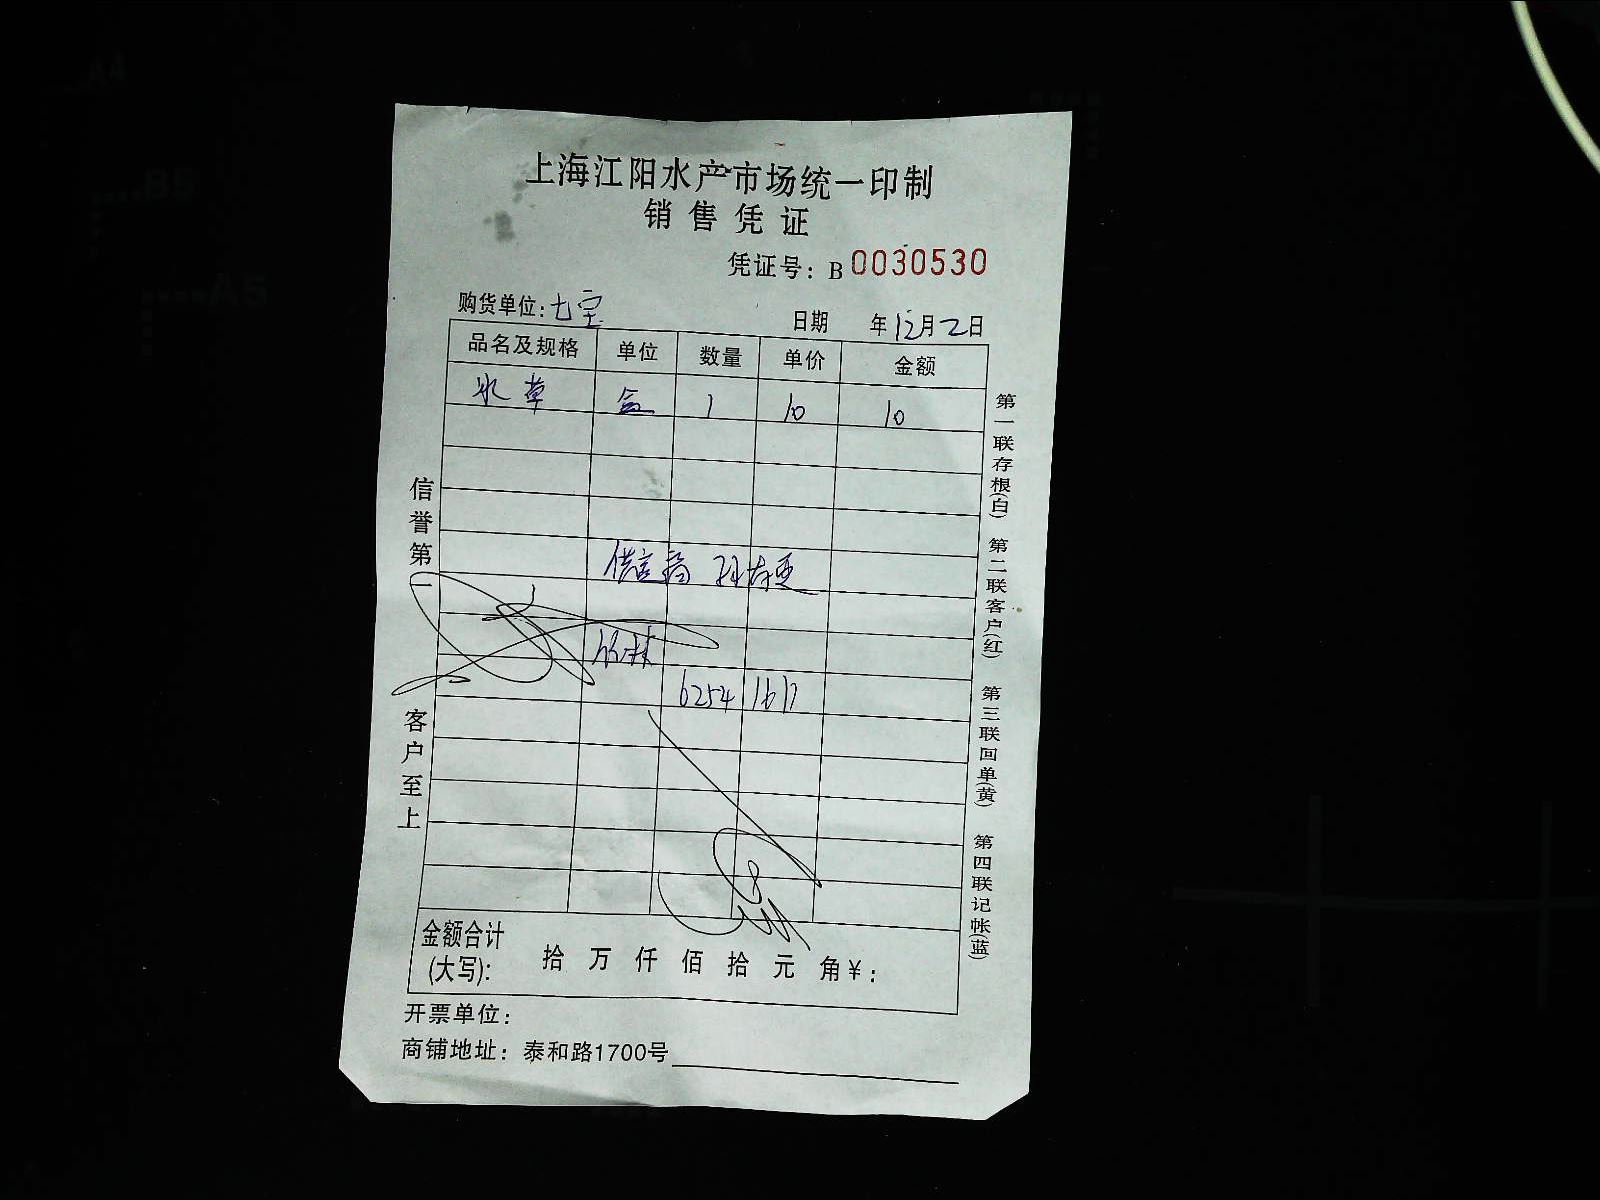 上海江阳水产市场统一印制
销售凭证
凭证号：B 0030530
购货单位：七宝
日期 年12月2日
品名及规格 单位 数量 单价 金额
水草 盒 1 10 10
6254 1617
信誉第一 客户至上
第一联存根(白) 第二联客户(红) 第三联回单(黄) 第四联记帐(蓝)
金额合计
(大写)： 拾 万 仟 佰 拾 元 角 ¥：
开票单位：
商铺地址：泰和路1700号